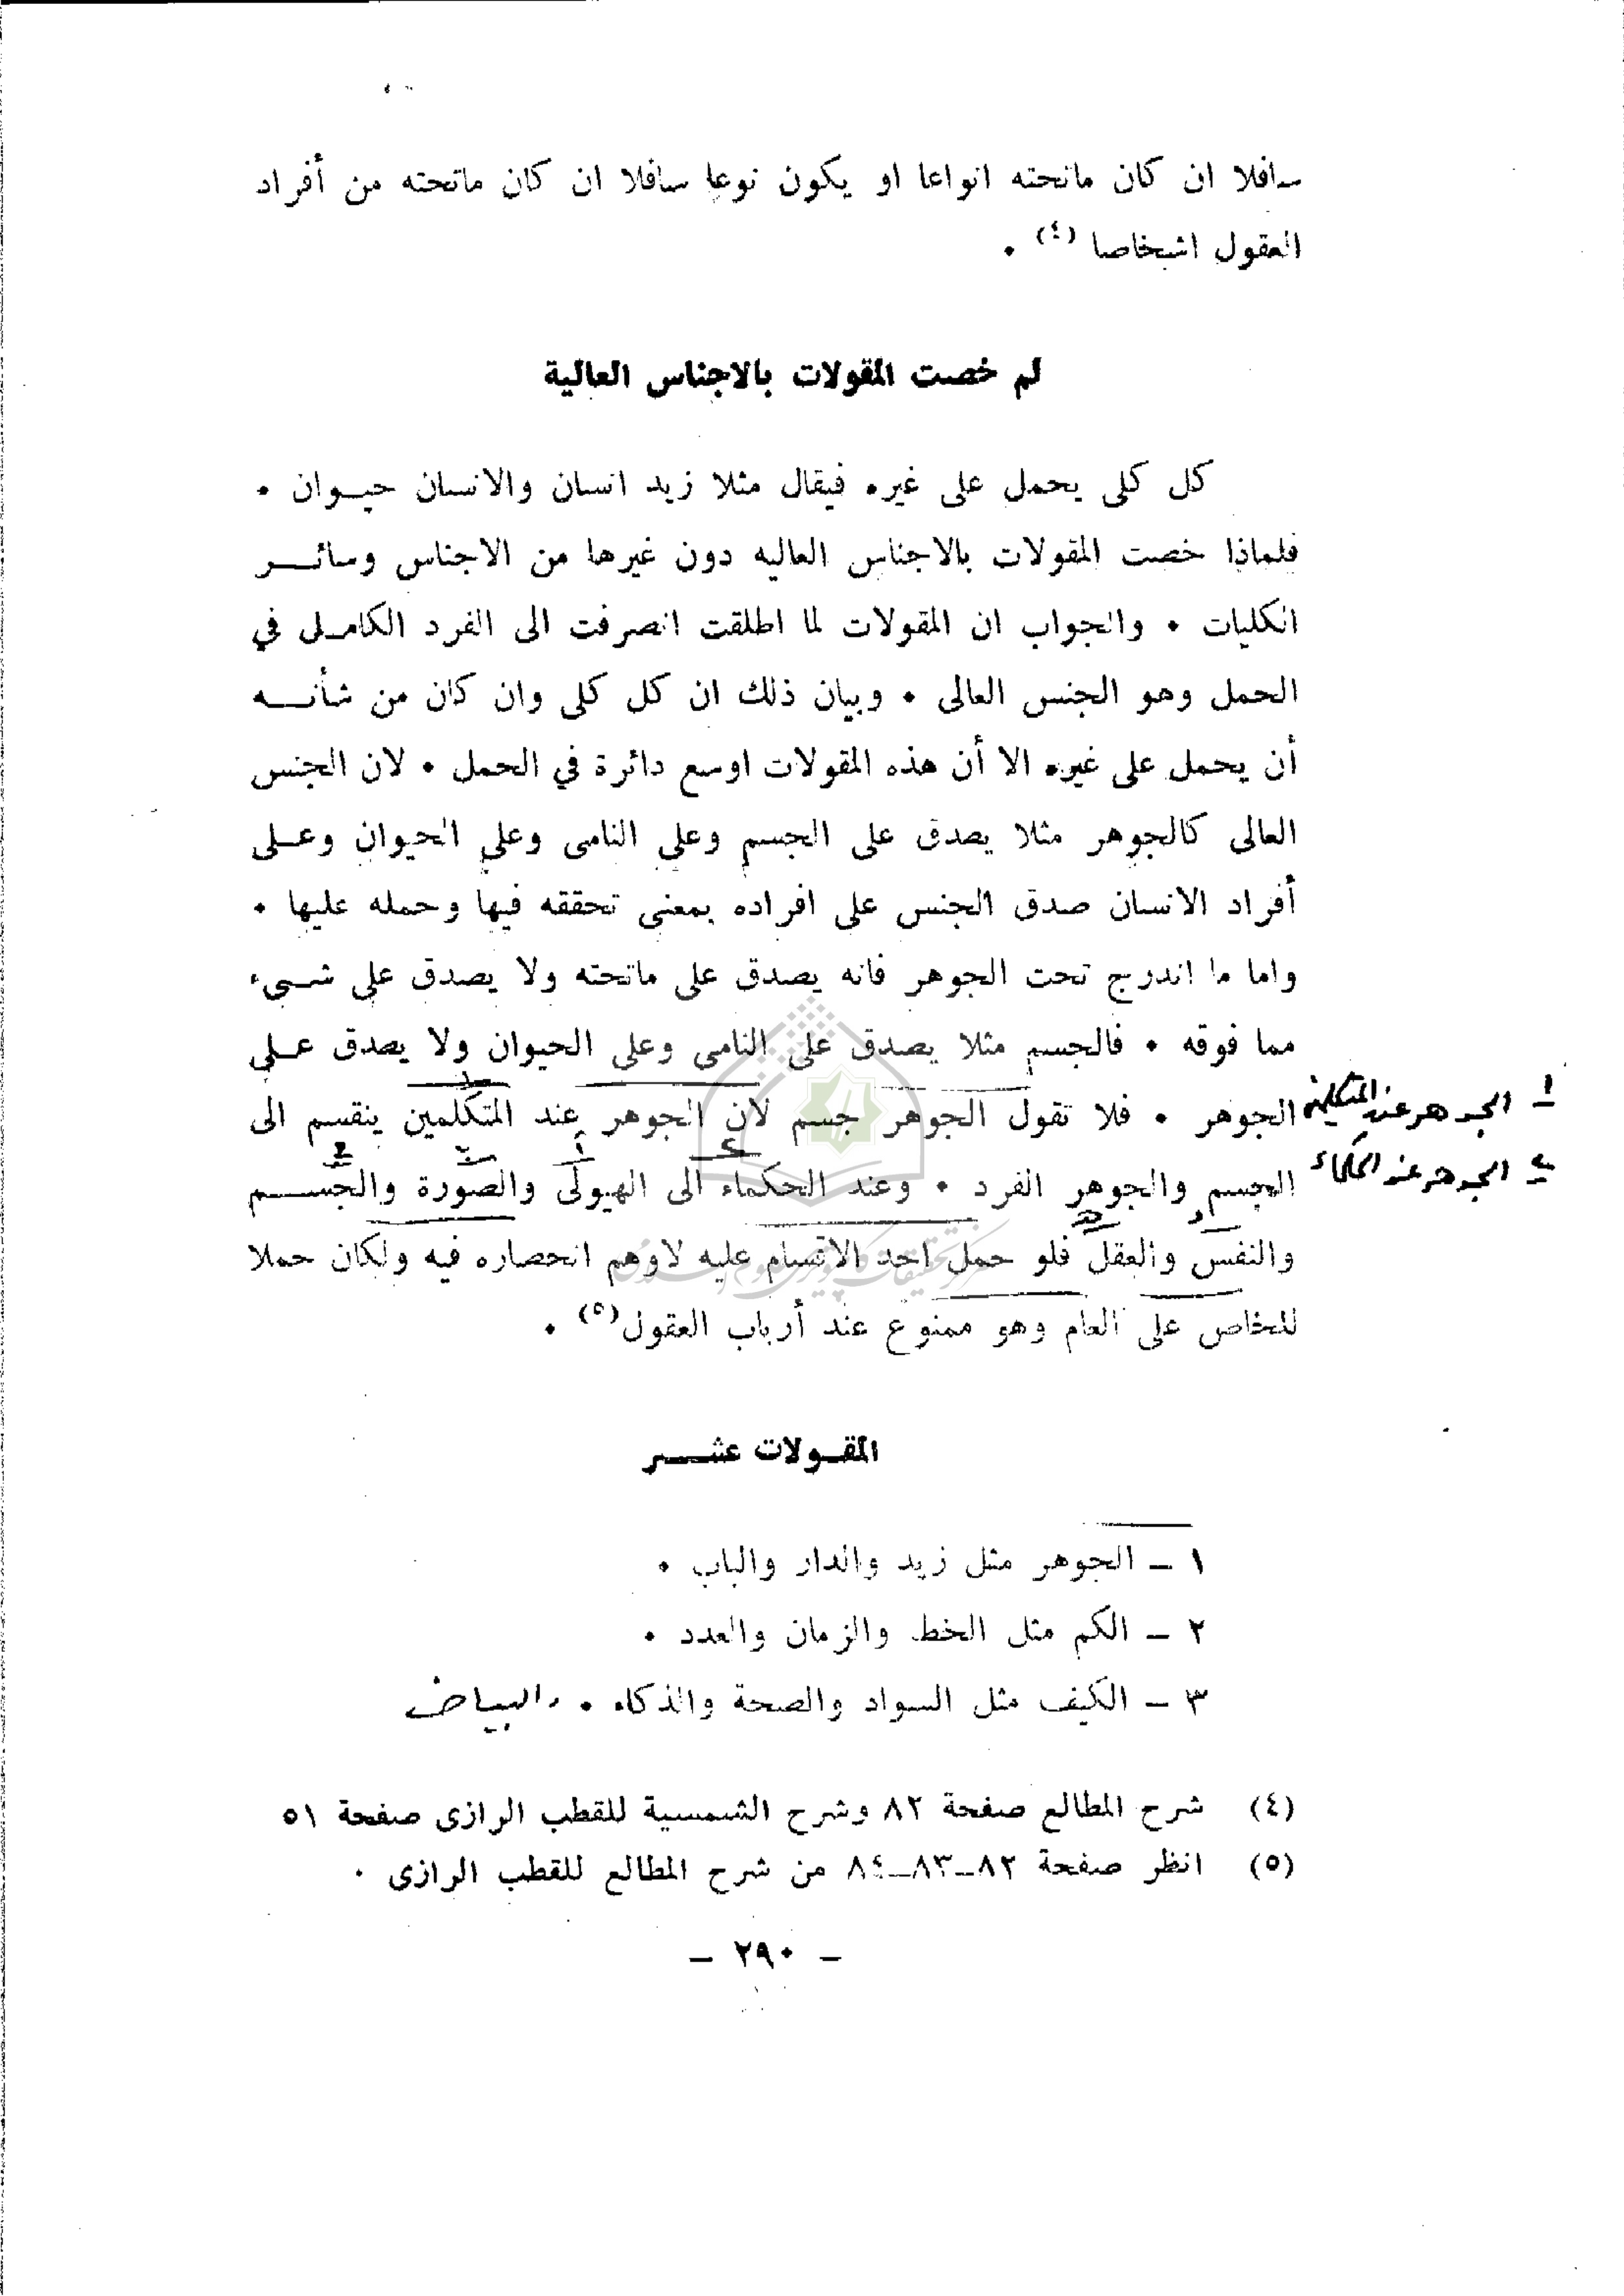 سافلا ان كان ماتحته انواعا او يكون نوعا سافلا ان كان ماتحته من أفراد
العقول اشخاصا (٤) •
لم خصت المقولات بالاجناس العالية
كل كلى يحمل على غيره فيقال مثلا زيد انسان والانسان حيـوان •
فلماذا خصت المقولات بالاجناس العاليه دون غيرها من الاجناس وسائـــر
الكليات • والجواب ان المقولات لما اطلقت انصرفت الى الفرد الكامـلى في
الحمل وهو الجنس العالى • وبيان ذلك ان كل كلى وان كان من شأنـــه
أن يحمل على غيره الا أن هذه المقولات اوسع دائرة في الحمل • لان الجنس
العالى كالجوهر مثلا يصدق على الجسم وعلى النامى وعلى الحيوان وعـلى
أفراد الانسان صدق الجنس على افراده بمعنى تحققه فيها وحمله عليها •
واما ما اندرج تحت الجوهر فانه يصدق على ماتحته ولا يصدق على شـىء
مما فوقه • فالجسم مثلا يصدق على النامى وعلى الحيوان ولا يصدق عـلى
الجوهر • فلا تقول الجوهر جسم لان الجوهر عند المتكلمين ينقسم الى
١ـ الجوهر عند المتكلمين
الجسم والجوهر الفرد • وعند الحكماء الى الهيولى والصورة والجســـم
٢ـ الجوهر عند الحكماء
والنفس والعقل فلو حمل احد الاقسام عليه لاوهم انحصاره فيه ولكان حملا
للخاص على العام وهو ممنوع عند أرباب العقول(٥) •
المقـولات عشـــر
١ ـ الجوهر مثل زيد والدار والباب •
٢ ـ الكم مثل الخط والزمان والعدد •
٣ ـ الكيف مثل السواد والصحة والذكاء • والبياض
(٤) شرح المطالع صفحة ٨٢ وشرح الشمسية للقطب الرازى صفحة ٥١
(٥) انظر صفحة ٨٢ـ٨٣ـ٨٤ من شرح المطالع للقطب الرازى •
ـ ٢٩٠ ـ